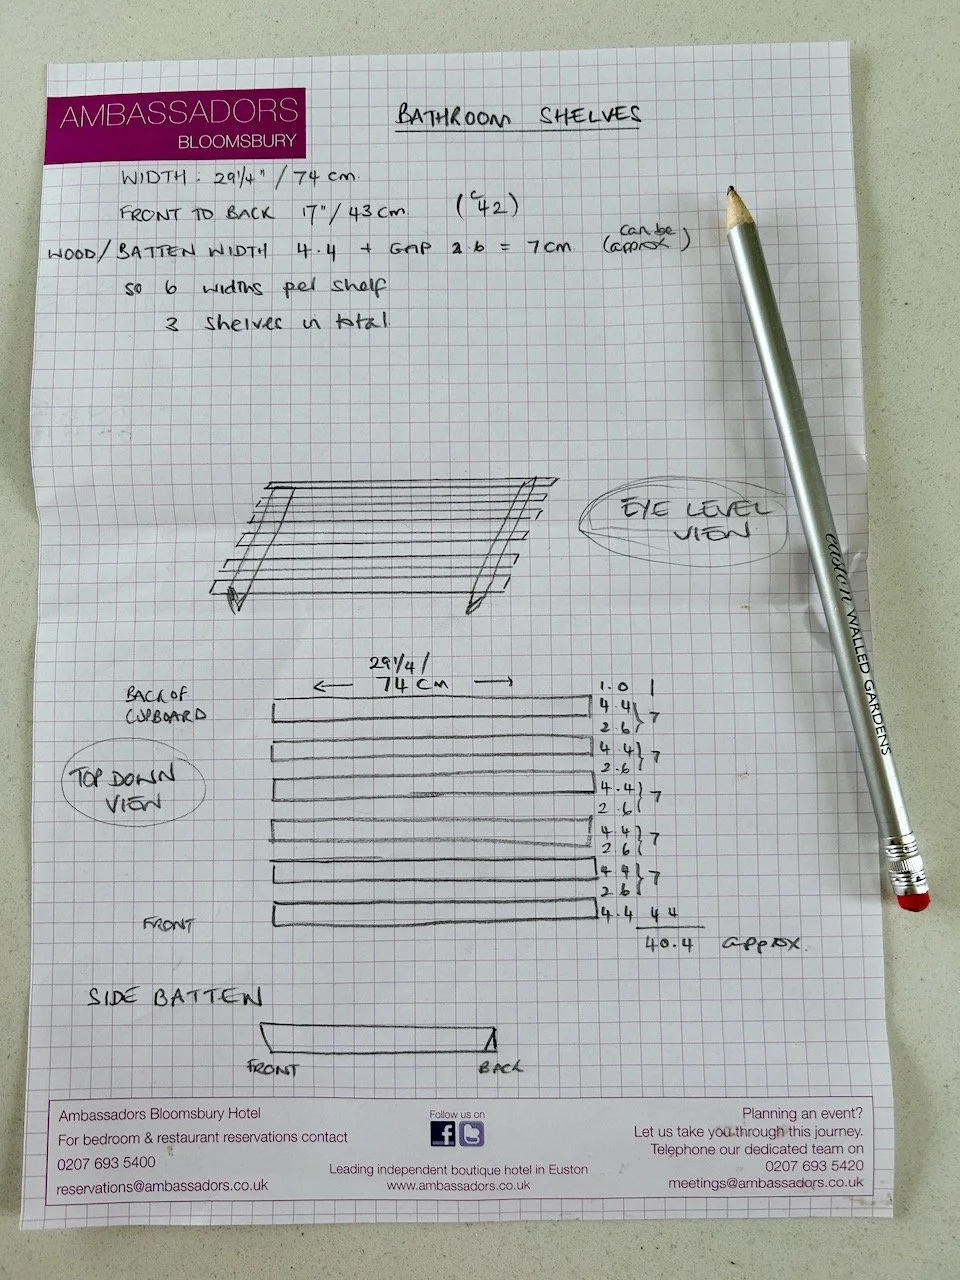 AMBASSADORS
BLOOMSBURY
BATHROOM SHELVES
WIDTH : 29 1/4" / 74 cm.
FRONT TO BACK 17" / 43 cm. (c 42)
WOOD/BATTEN WIDTH 4.4 + GAP 2.6 = 7cm (can be approx)
so 6 widths per shelf
3 shelves in total
EYE LEVEL
VIEW
29 1/4 /
← 74 cm →
BACK OF
CUPBOARD
TOP DOWN
VIEW
FRONT
1.0 1
4.4
2.6 } 7
4.4
2.6 } 7
4.4
2.6 } 7
4.4
2.6 } 7
4.4
2.6 } 7
4.4 4 4
40.4 approx.
SIDE BATTEN
FRONT BACK
Ambassadors Bloomsbury Hotel
For bedroom & restaurant reservations contact
0207 693 5400
reservations@ambassadors.co.uk
Follow us on
Leading independent boutique hotel in Euston
www.ambassadors.co.uk
Planning an event?
Let us take you through this journey.
Telephone our dedicated team on
0207 693 5420
meetings@ambassadors.co.uk
easton WALLED GARDENS